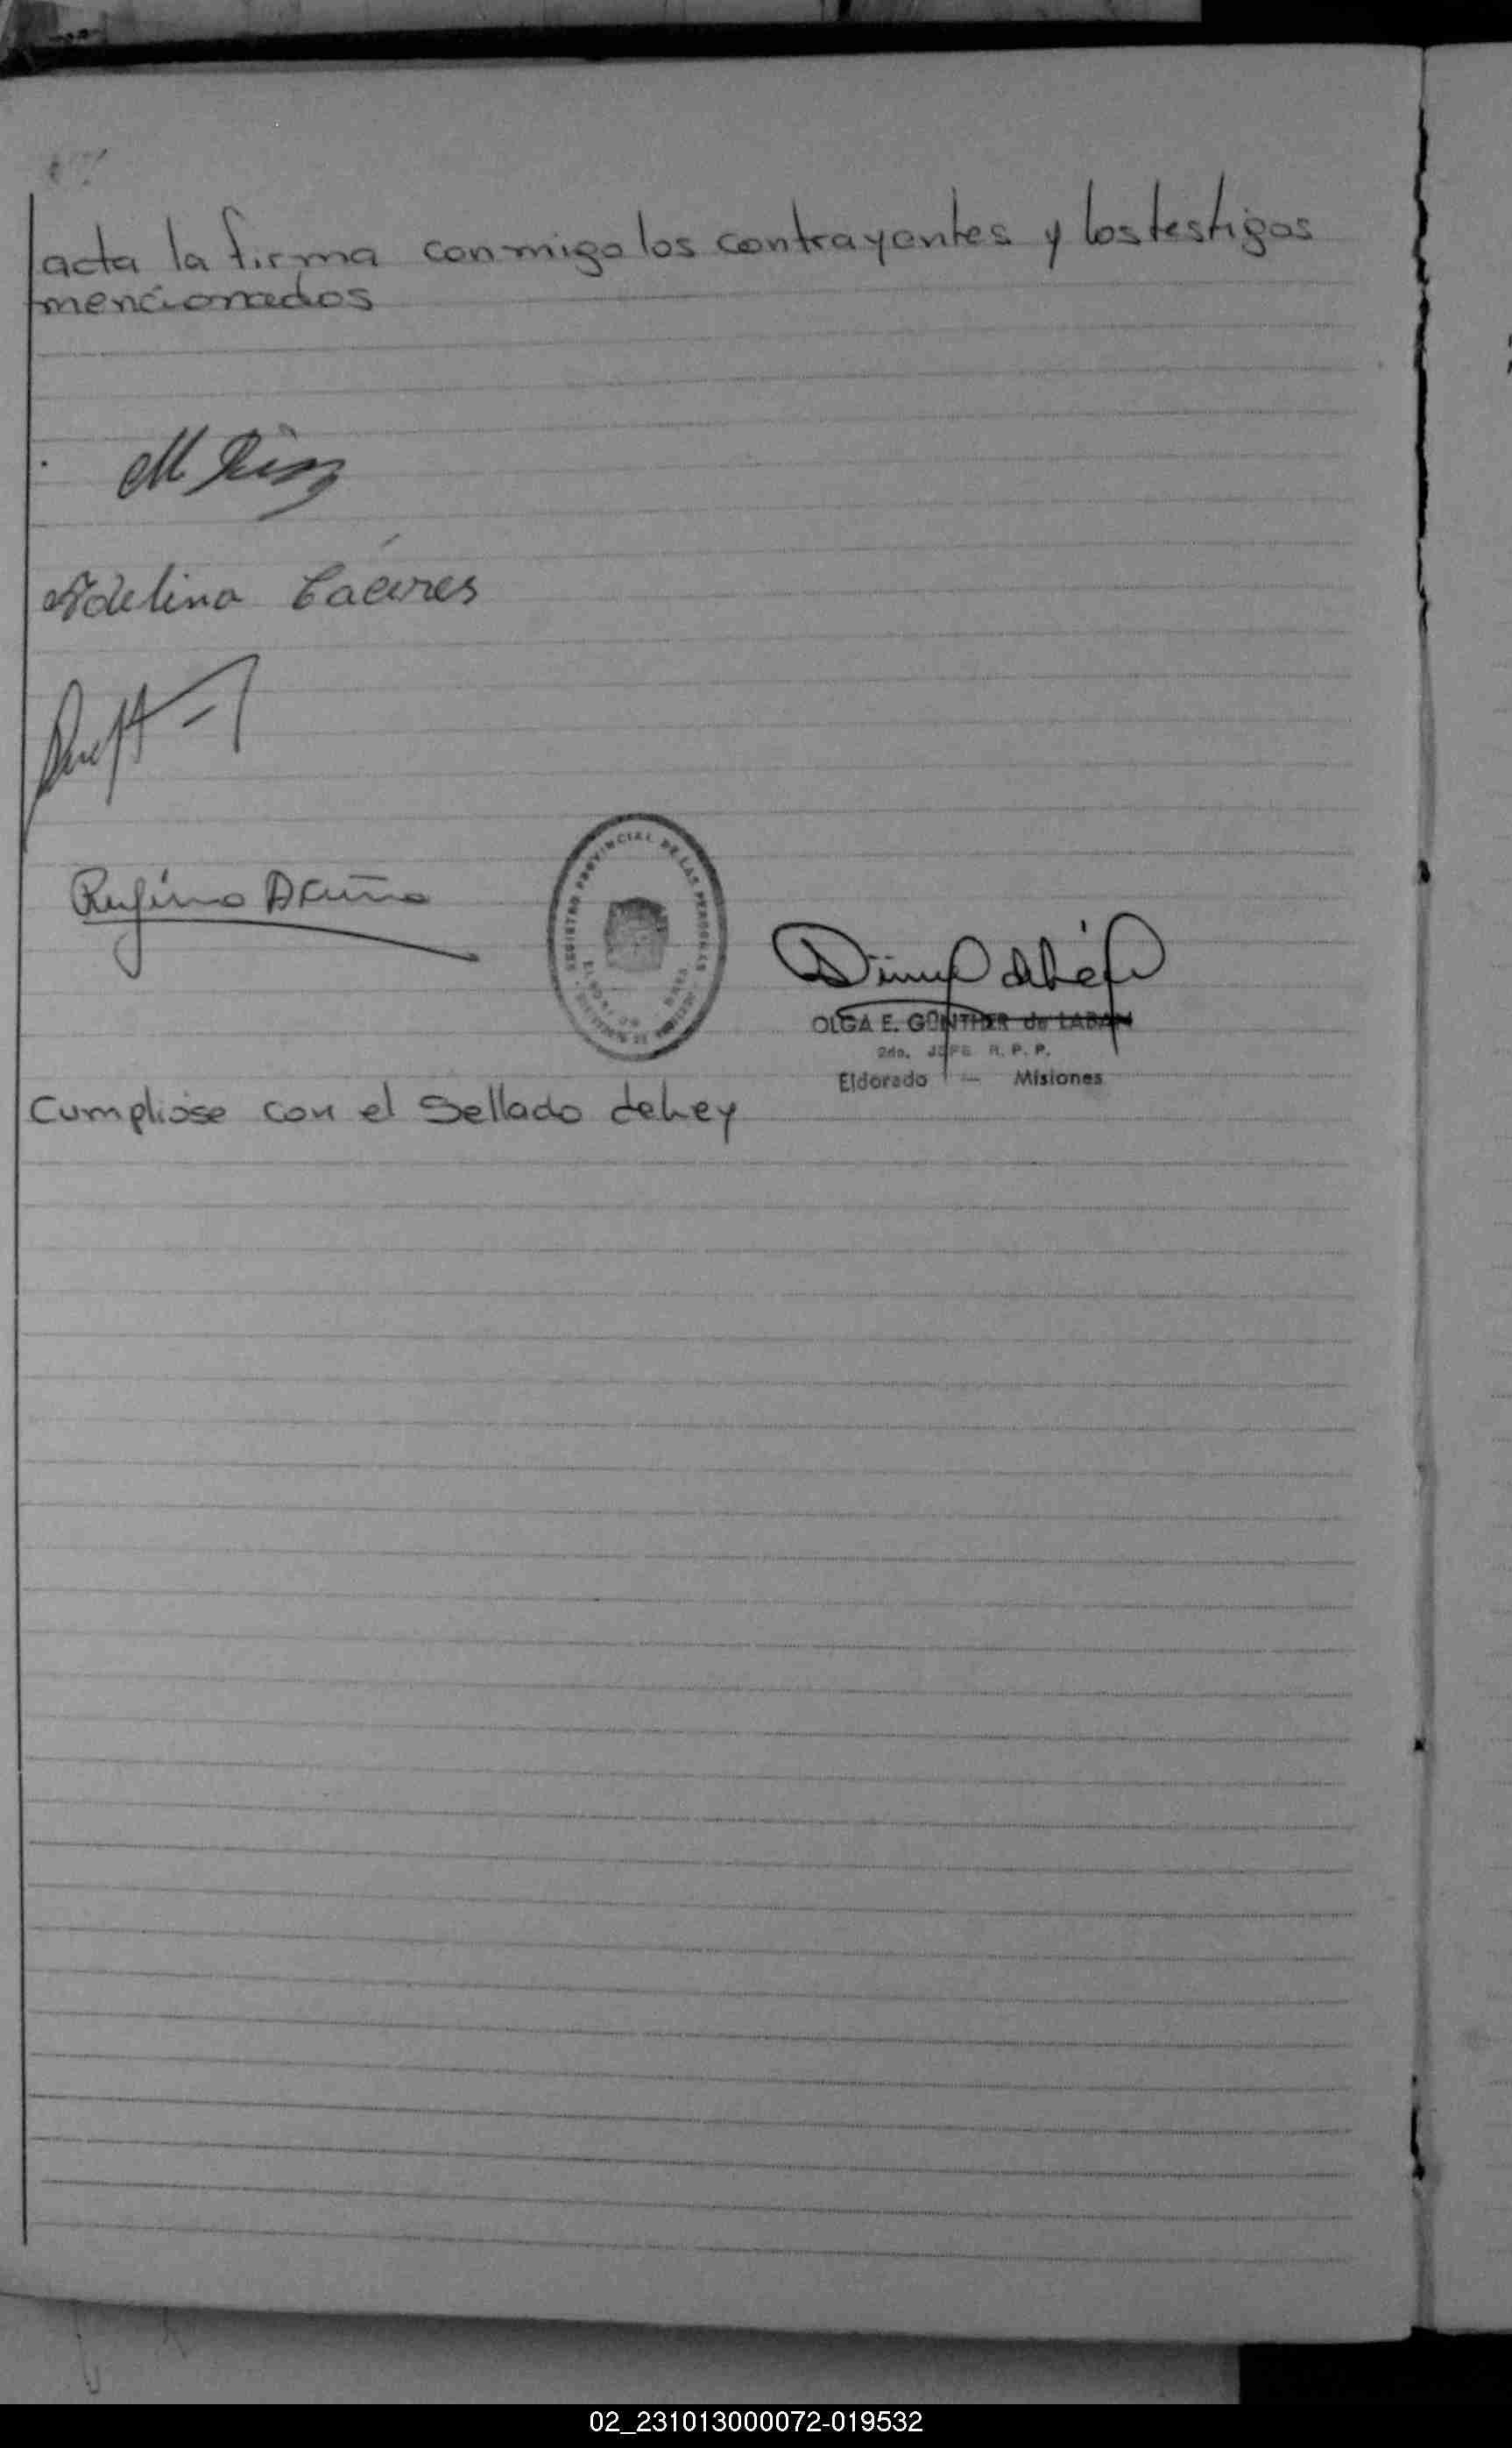 acta la firma conmigo los contrayentes y los testigos
mencionados
Adelina Cáceres
Rufino Acuña
REGISTRO PROVINCIAL DE LAS PERSONAS
OLGA E. GÜNTHER de LABAN
2do. JEFE R. P. P.
Eldorado — Misiones
Cumpliose con el Sellado de Ley
02_231013000072-019532